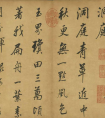 洞庭青草近中
秋更無一點風色
玉界瓊田三萬頃
著我扁舟一葉素